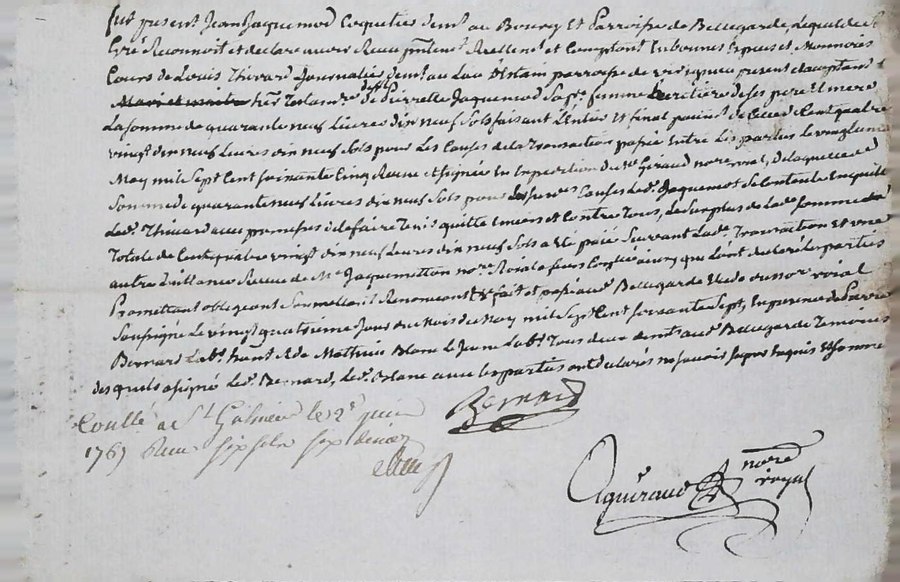 fut present Jean Jaquemod Coquetier demt au Bourg Et Parroisse de Bellegarde Lequel de
Gré Reconnoit et declare avoir Receu Reellemt et Comptant En bonnes Espices et Monnoies
Cours de Louis Thivard Journalier demt au Lieu parroisse de present et acceptant
Mari et de Pierrette Jaquemod Sa fe femme heritiere de ses pere et mere
La somme de quarante neuf Livres dix neuf Sols faisant L'Entier Et final paiemt de Celle de Cent quatre
vingt dix neuf Livres dix neuf Sols pour Les Causes de la Transaction passée Entre Les parties le vingt un
May mil Sept Cent soixante Cinq Receue Et signée En Expedition de Me Giraud nore roial, de laquelle de
Somme de quarante neuf Livres dix neuf Sols pour Causes Led. Jaquemot Se Contente En quitte
Led. Thivard avec promesses de le faire Tenir quitte Envers et Contre Tous, Le Surplus de Lade. Somme
Totale de Cent quatre vingt dix neuf Livres dix neuf Sols a Eté paié Suivant Lade. Transaction Et une
autre quittance Receue de Me Jaquemetton nore Roial ainsy que L'ont declaré les parties
Promettant obligeant Renonceant &c fait et passé aud. Bellegarde Etude du nore roial
Soussigné Le vingt quatrieme Jour du Mois de May mil Sept Cent soixante Sept, En presence de Pierre
Bernard Labr. & de Mathieu Blanc Le Jeune Labr. Tous deux demts aud. Bellegarde Temoins
desquels a signé Led. Bernard, Led. Blanc avec Les parties ont declarés ne savoir signer Enquis Et Sommé
Bernard
Conllé a St Galmier le 2e juin
1767 Receu six sols six deniers
Giraud nore
royal